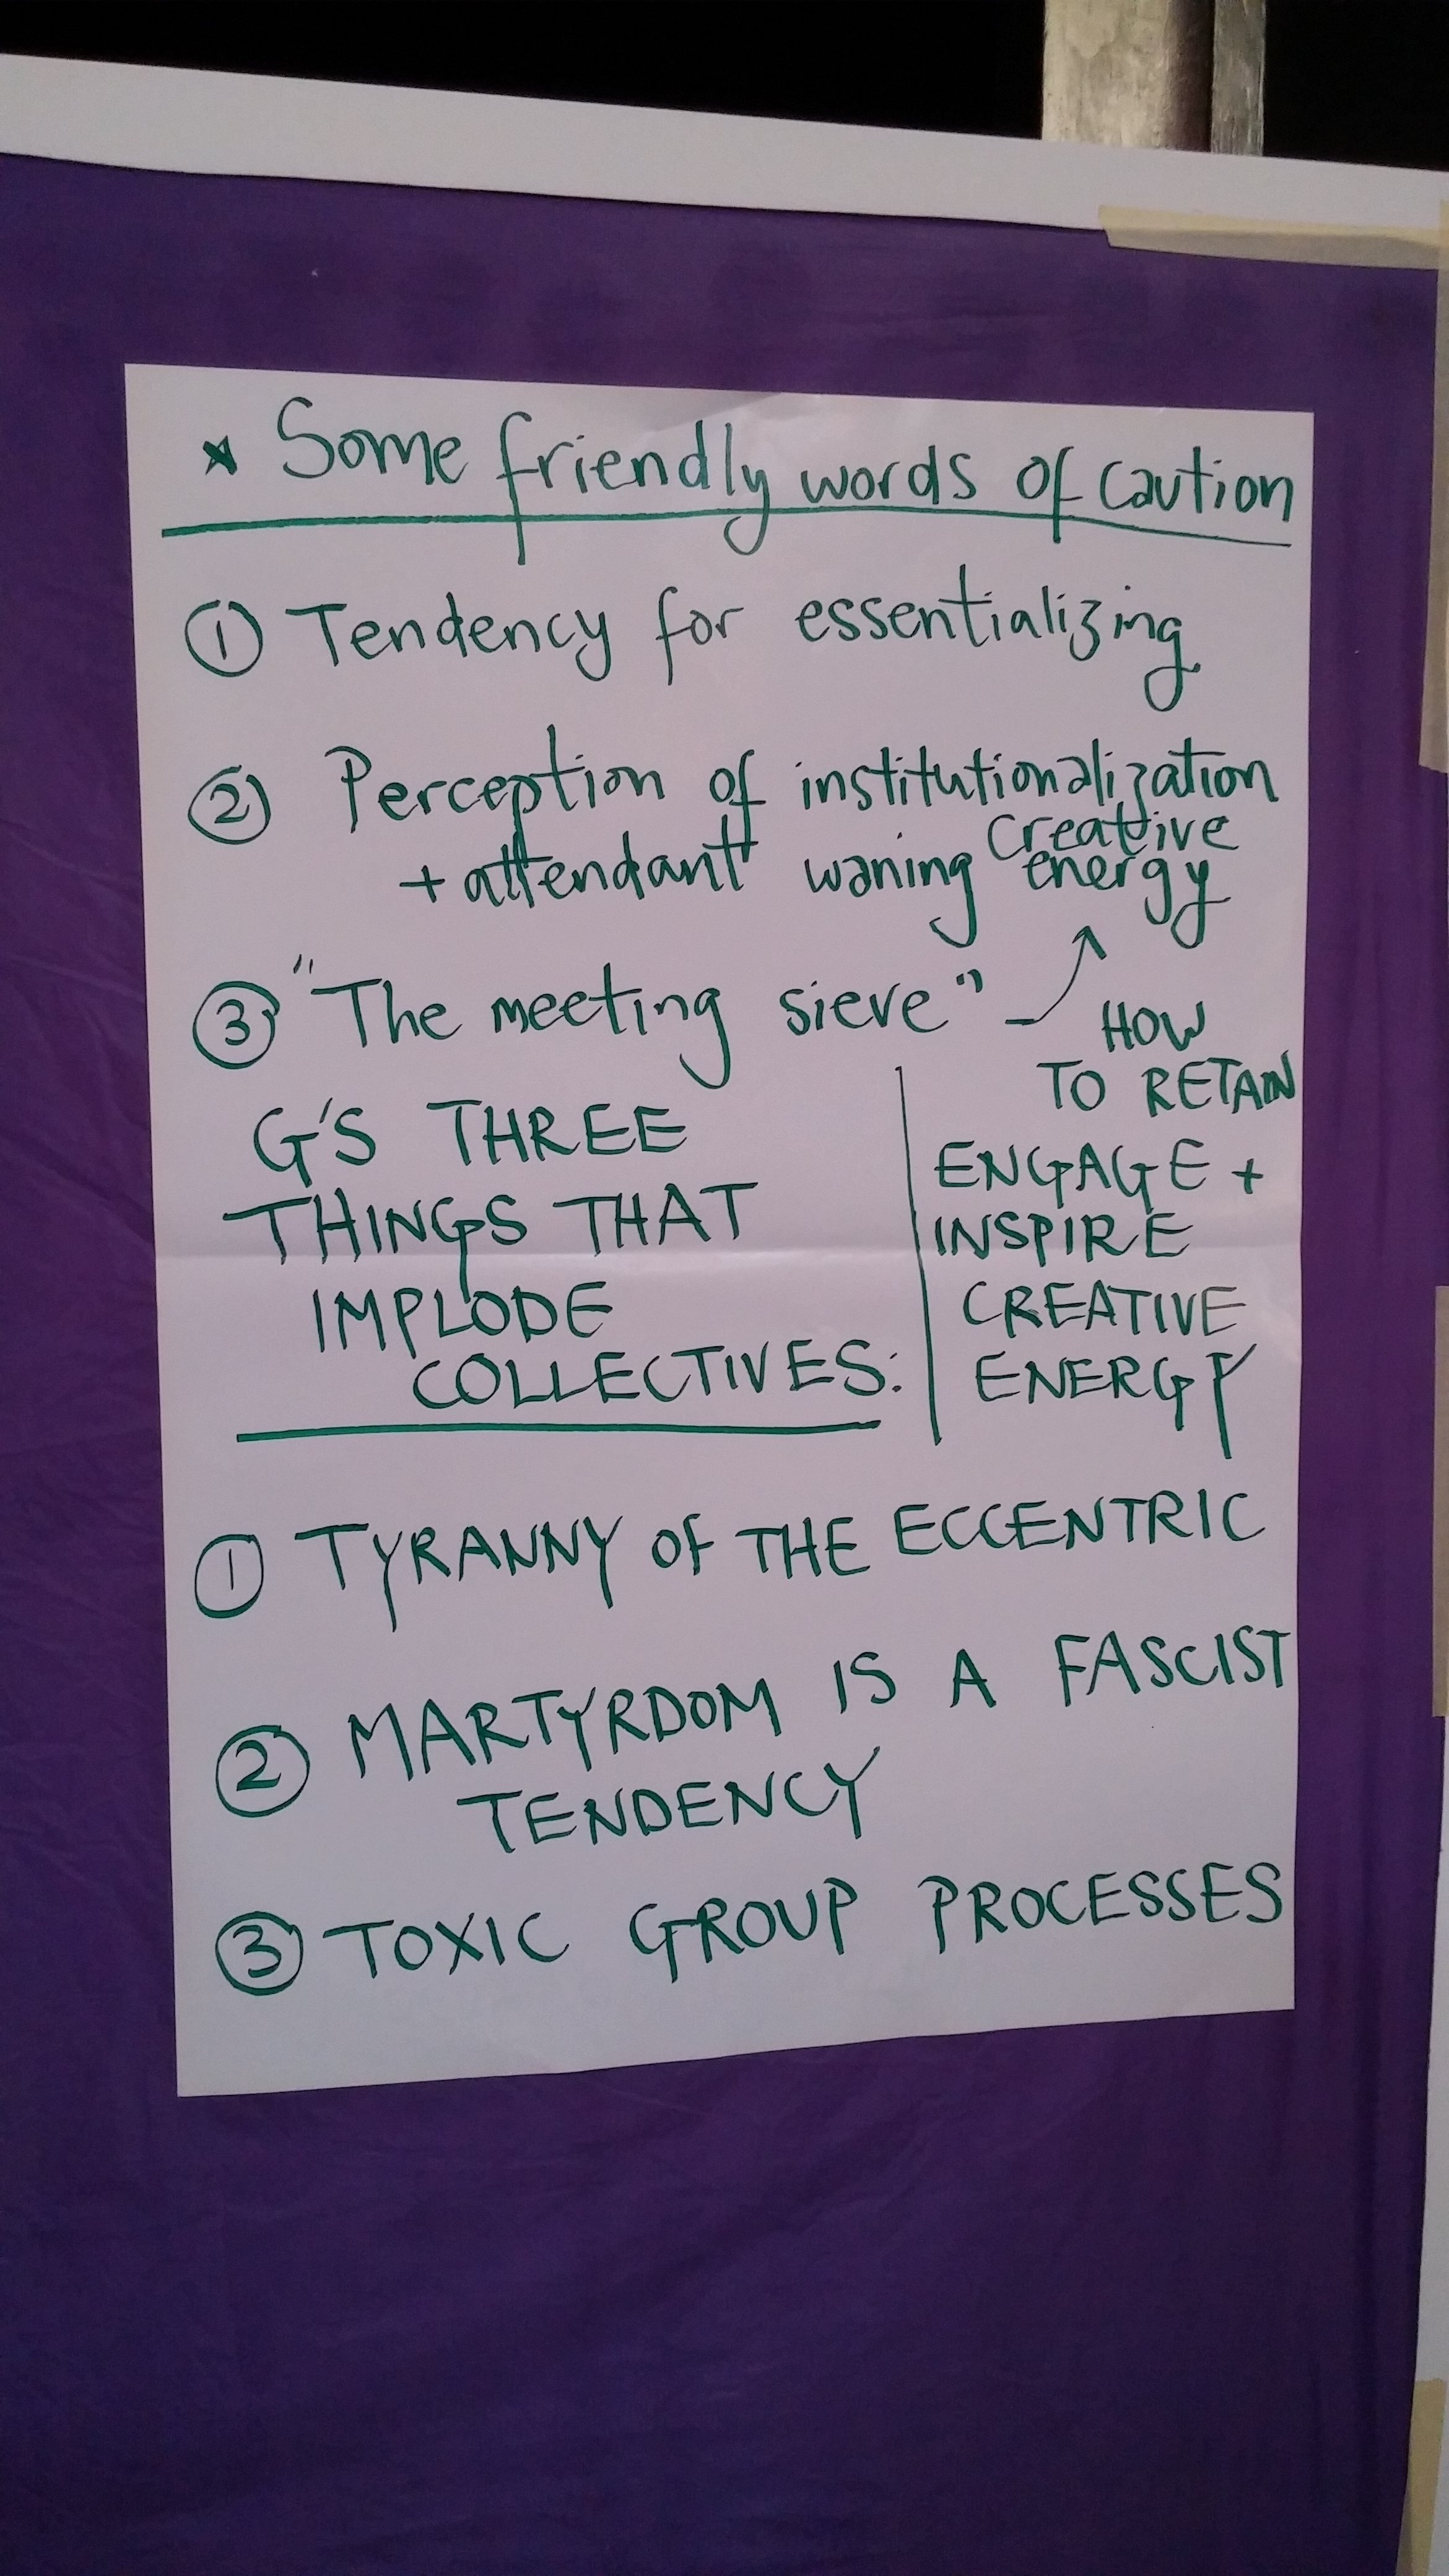 * Some friendly words of caution
① Tendency for essentializing
② Perception of institutionalization
creative
+ attendant waning energy
③ "The meeting sieve"
G'S THREE
THINGS THAT
IMPLODE
COLLECTIVES:
HOW
TO RETAIN
ENGAGE +
INSPIRE
CREATIVE
ENERGY
① TYRANNY OF THE ECCENTRIC
② MARTYRDOM IS A FASCIST
TENDENCY
③ TOXIC GROUP PROCESSES